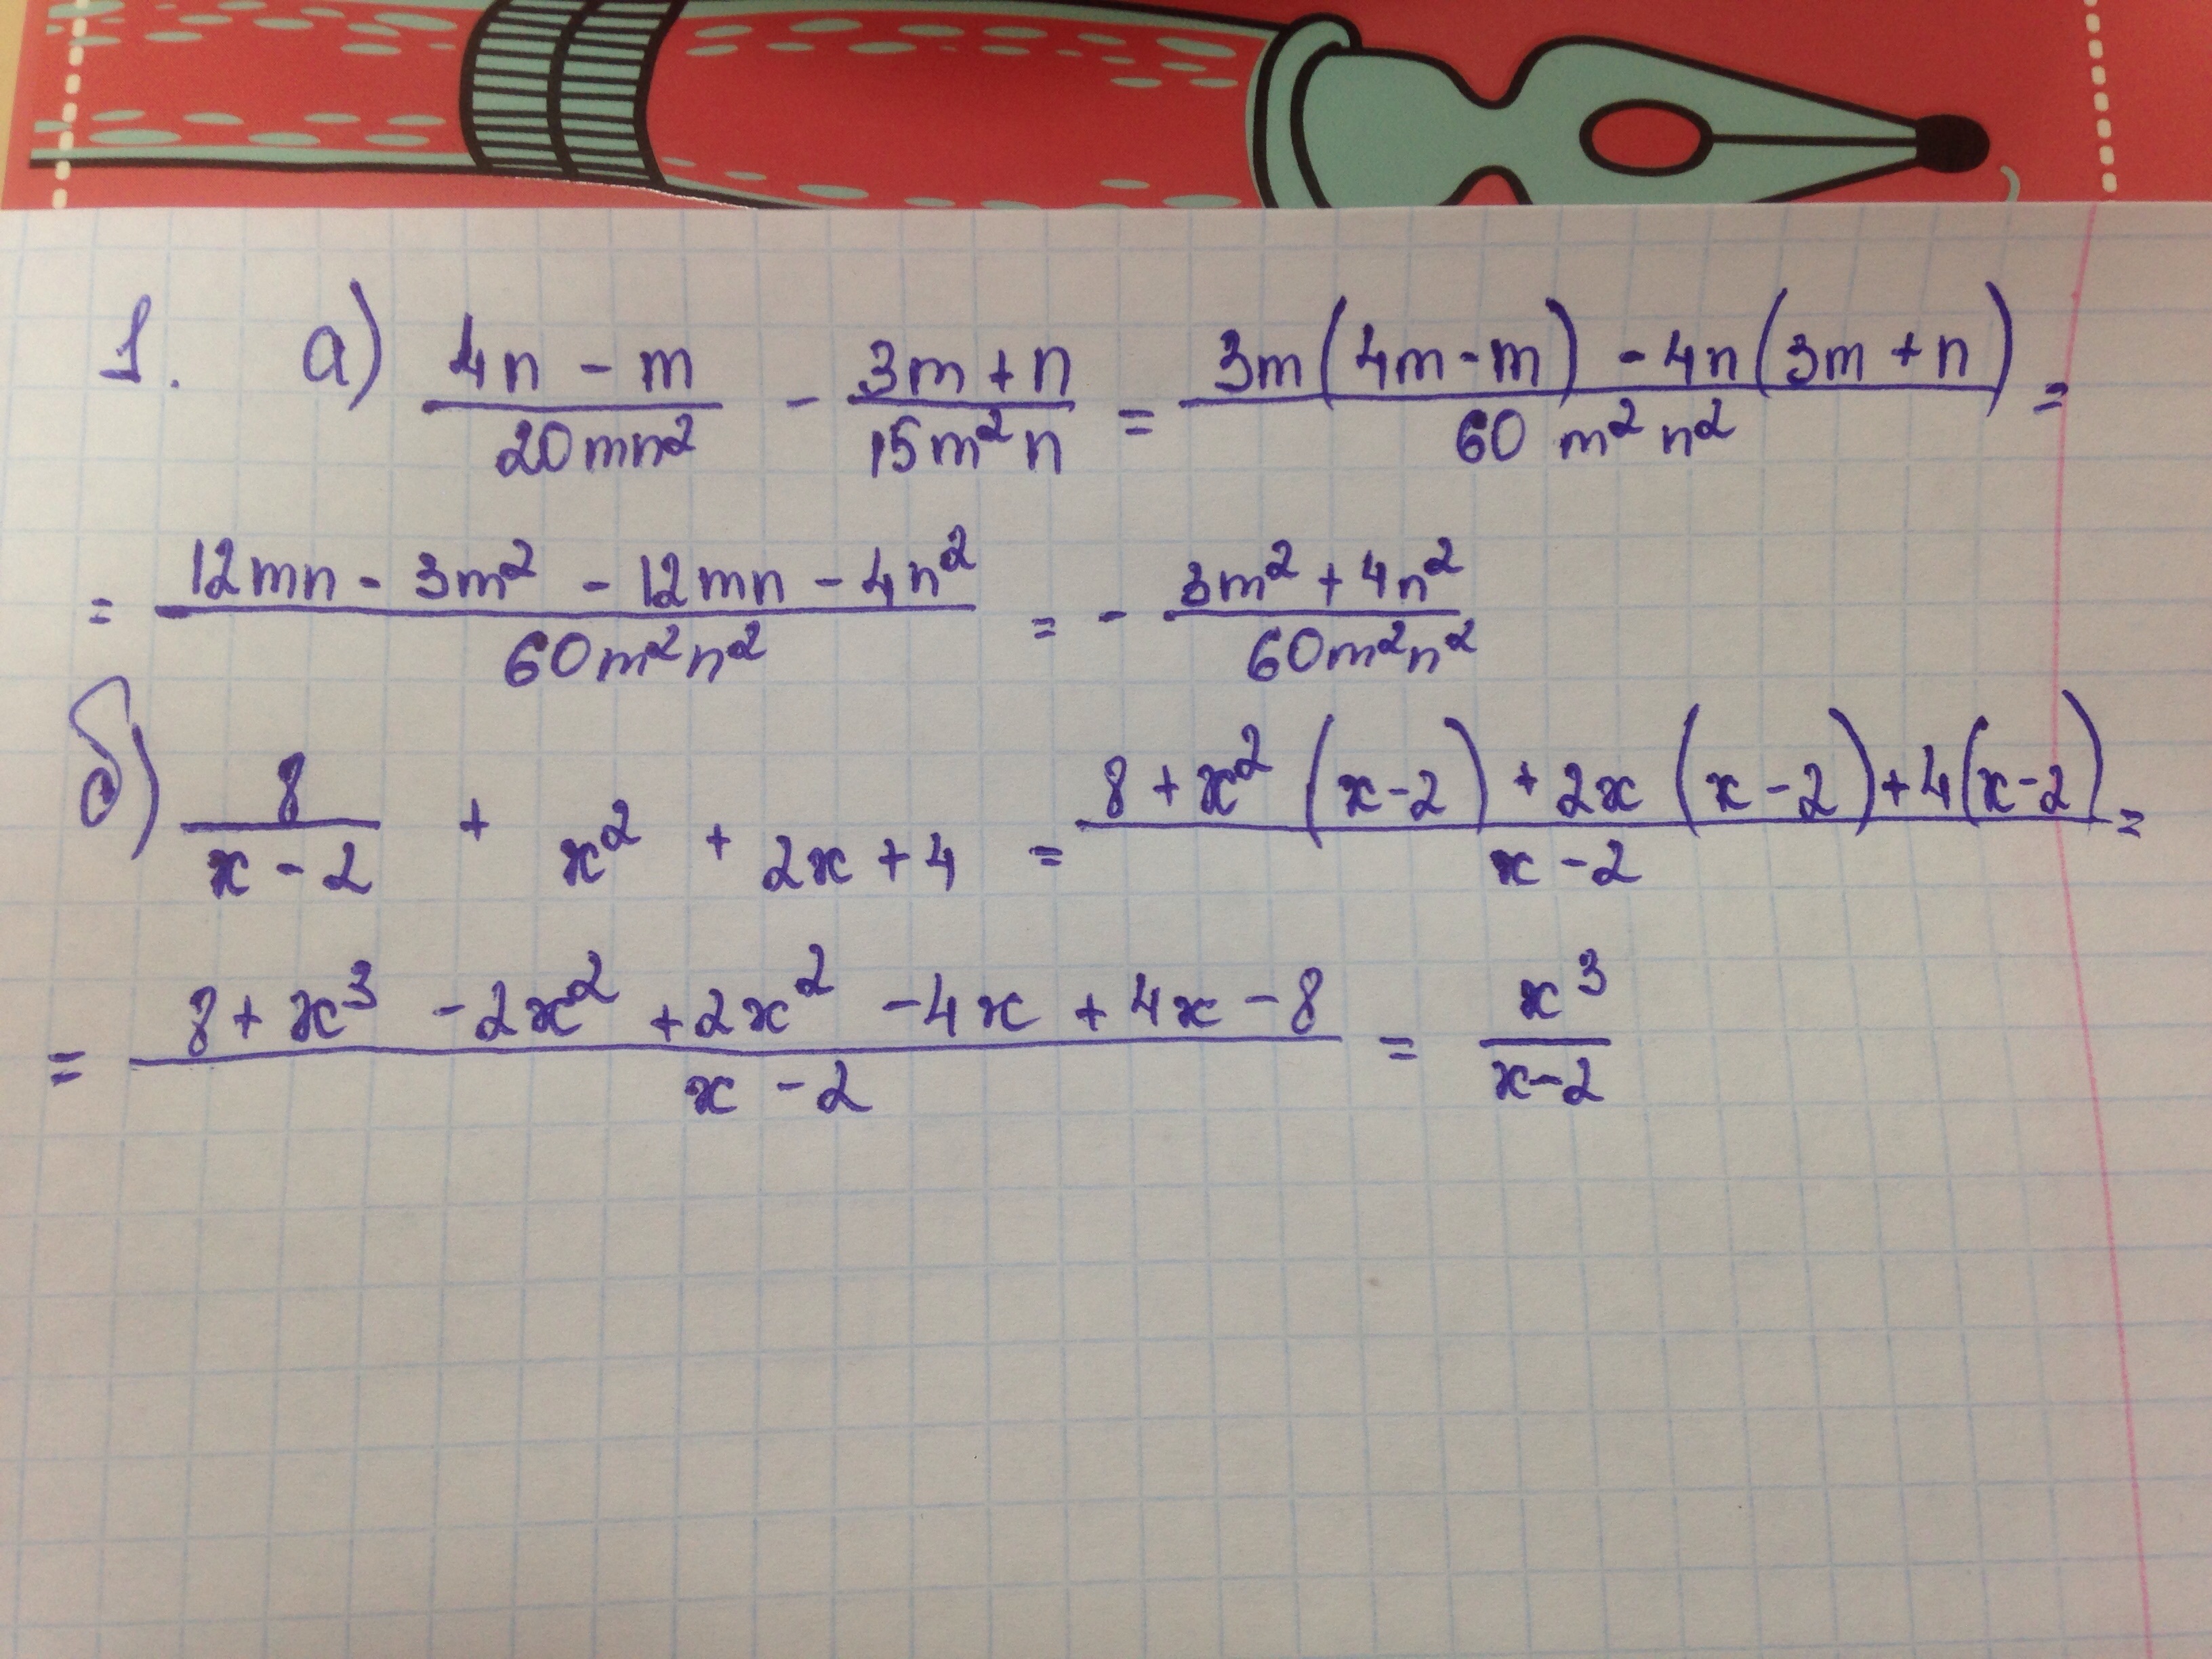 1. а) (4n - m)/(20mn²) - (3m + n)/(15m²n) = (3m(4m - m) - 4n(3m + n))/(60 m²n²) =
= (12mn - 3m² - 12mn - 4n²)/(60m²n²) = - (3m² + 4n²)/(60m²n²)
б) 8/(x - 2) + x² + 2x + 4 = (8 + x²(x - 2) + 2x(x - 2) + 4(x - 2))/(x - 2) =
= (8 + x³ - 2x² + 2x² - 4x + 4x - 8)/(x - 2) = x³/(x - 2)